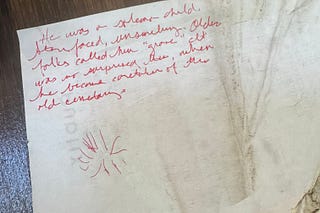 He was a solemn child.
Stern faced, unsmiling. Older
folks called him "grave". It
was no surprise then, when
he became caretaker of the
old cemetary.